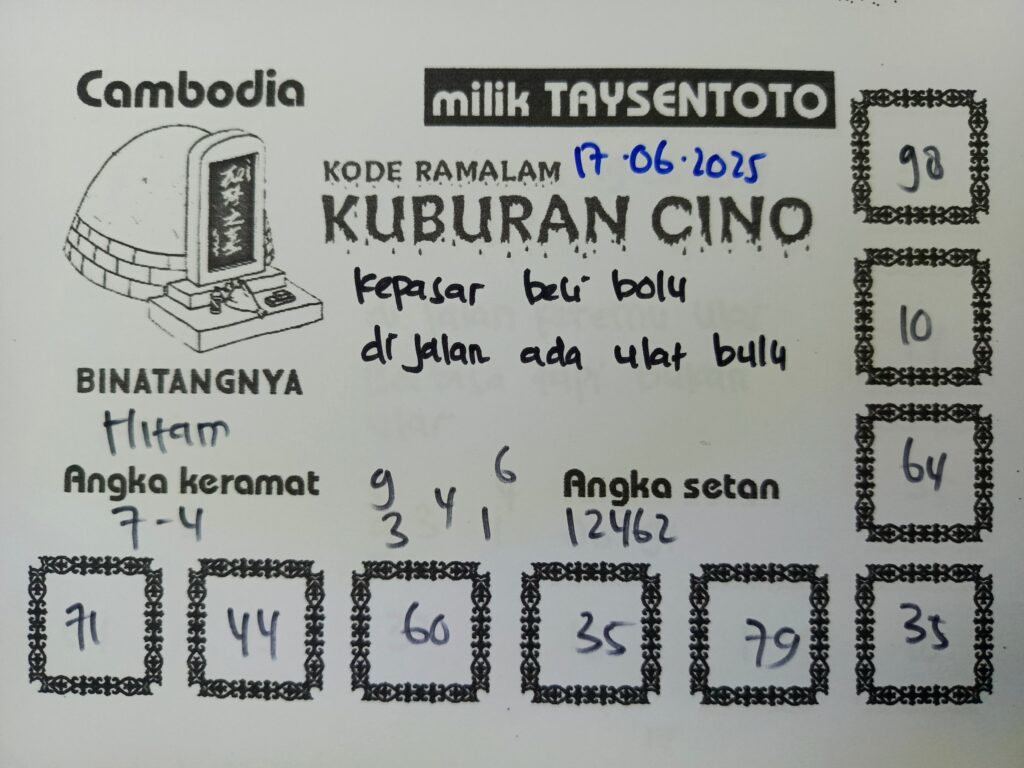 Cambodia
milik TAYSENTOTO
KODE RAMALAM 17.06.2025
KUBURAN CINO
kepasar beli bolu
di jalan ada ulat bulu
BINATANGNYA
Hitam
Angka keramat
7-4
9 6
4
3 1
Angka setan
12462
98
10
64
71 44 60 35 79 35